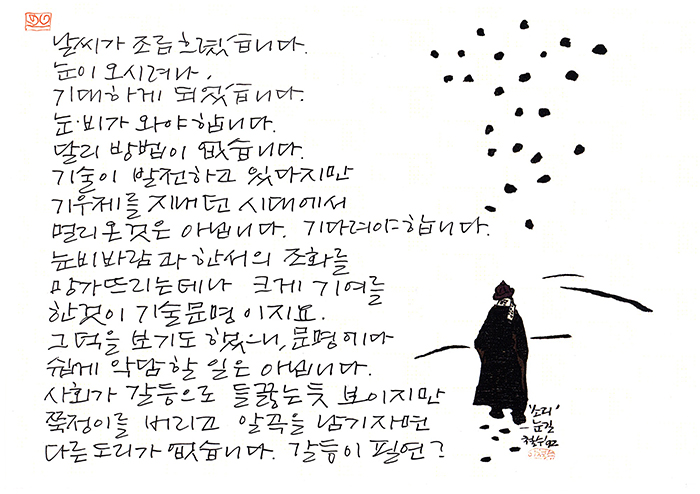 날씨가 조금 흐렸습니다.
눈이 오시려나,
기대하게 되었습니다.
눈·비가 와야 합니다.
달리 방법이 없습니다.
기술이 발전하고 있다지만
기우제를 지내던 시대에서
멀리 온 것은 아닙니다. 기다려야 합니다.
눈비바람과 한서의 조화를
망가뜨리는데나 크게 기여를
한 것이 기술문명이지요.
그 덕을 보기도 했으니, 문명에다
쉽게 악담할 일은 아닙니다.
사회가 갈등으로 들끓는 듯 보이지만
쭉정이를 버리고 알곡을 남기자면
다른 도리가 없습니다. 갈등이 필연?
'소리'
-눈길
철수 92